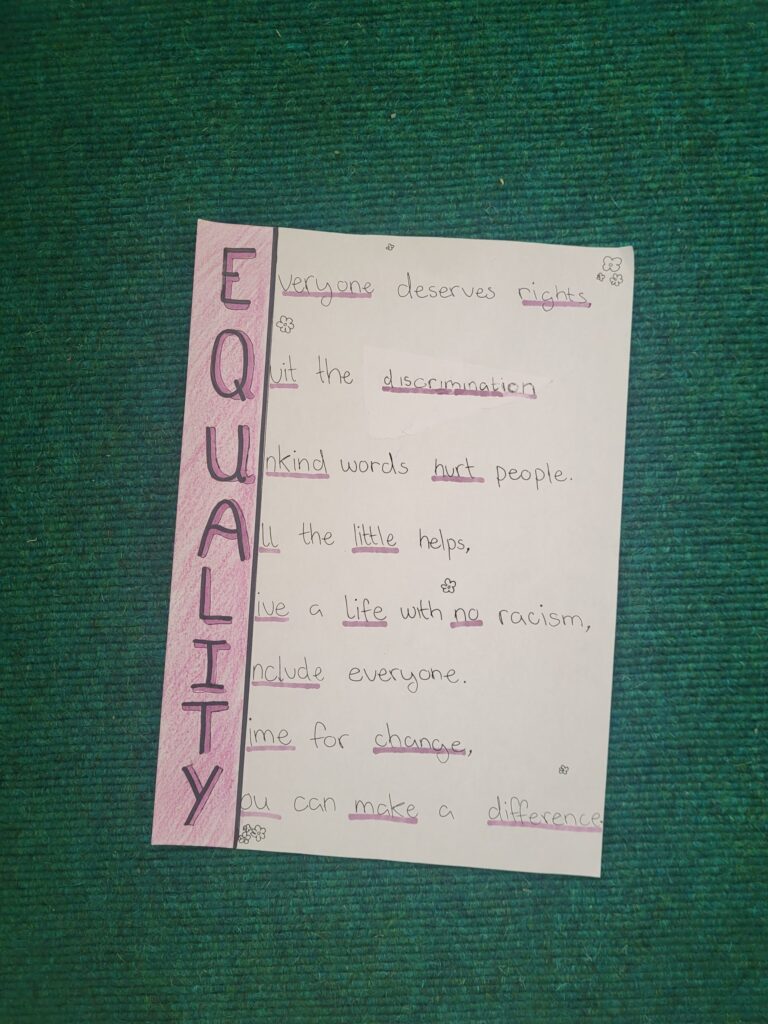 Everyone deserves rights,
Quit the discrimination
Unkind words hurt people.
All the little helps,
Live a life with no racism,
Include everyone.
Time for change,
You can make a difference.